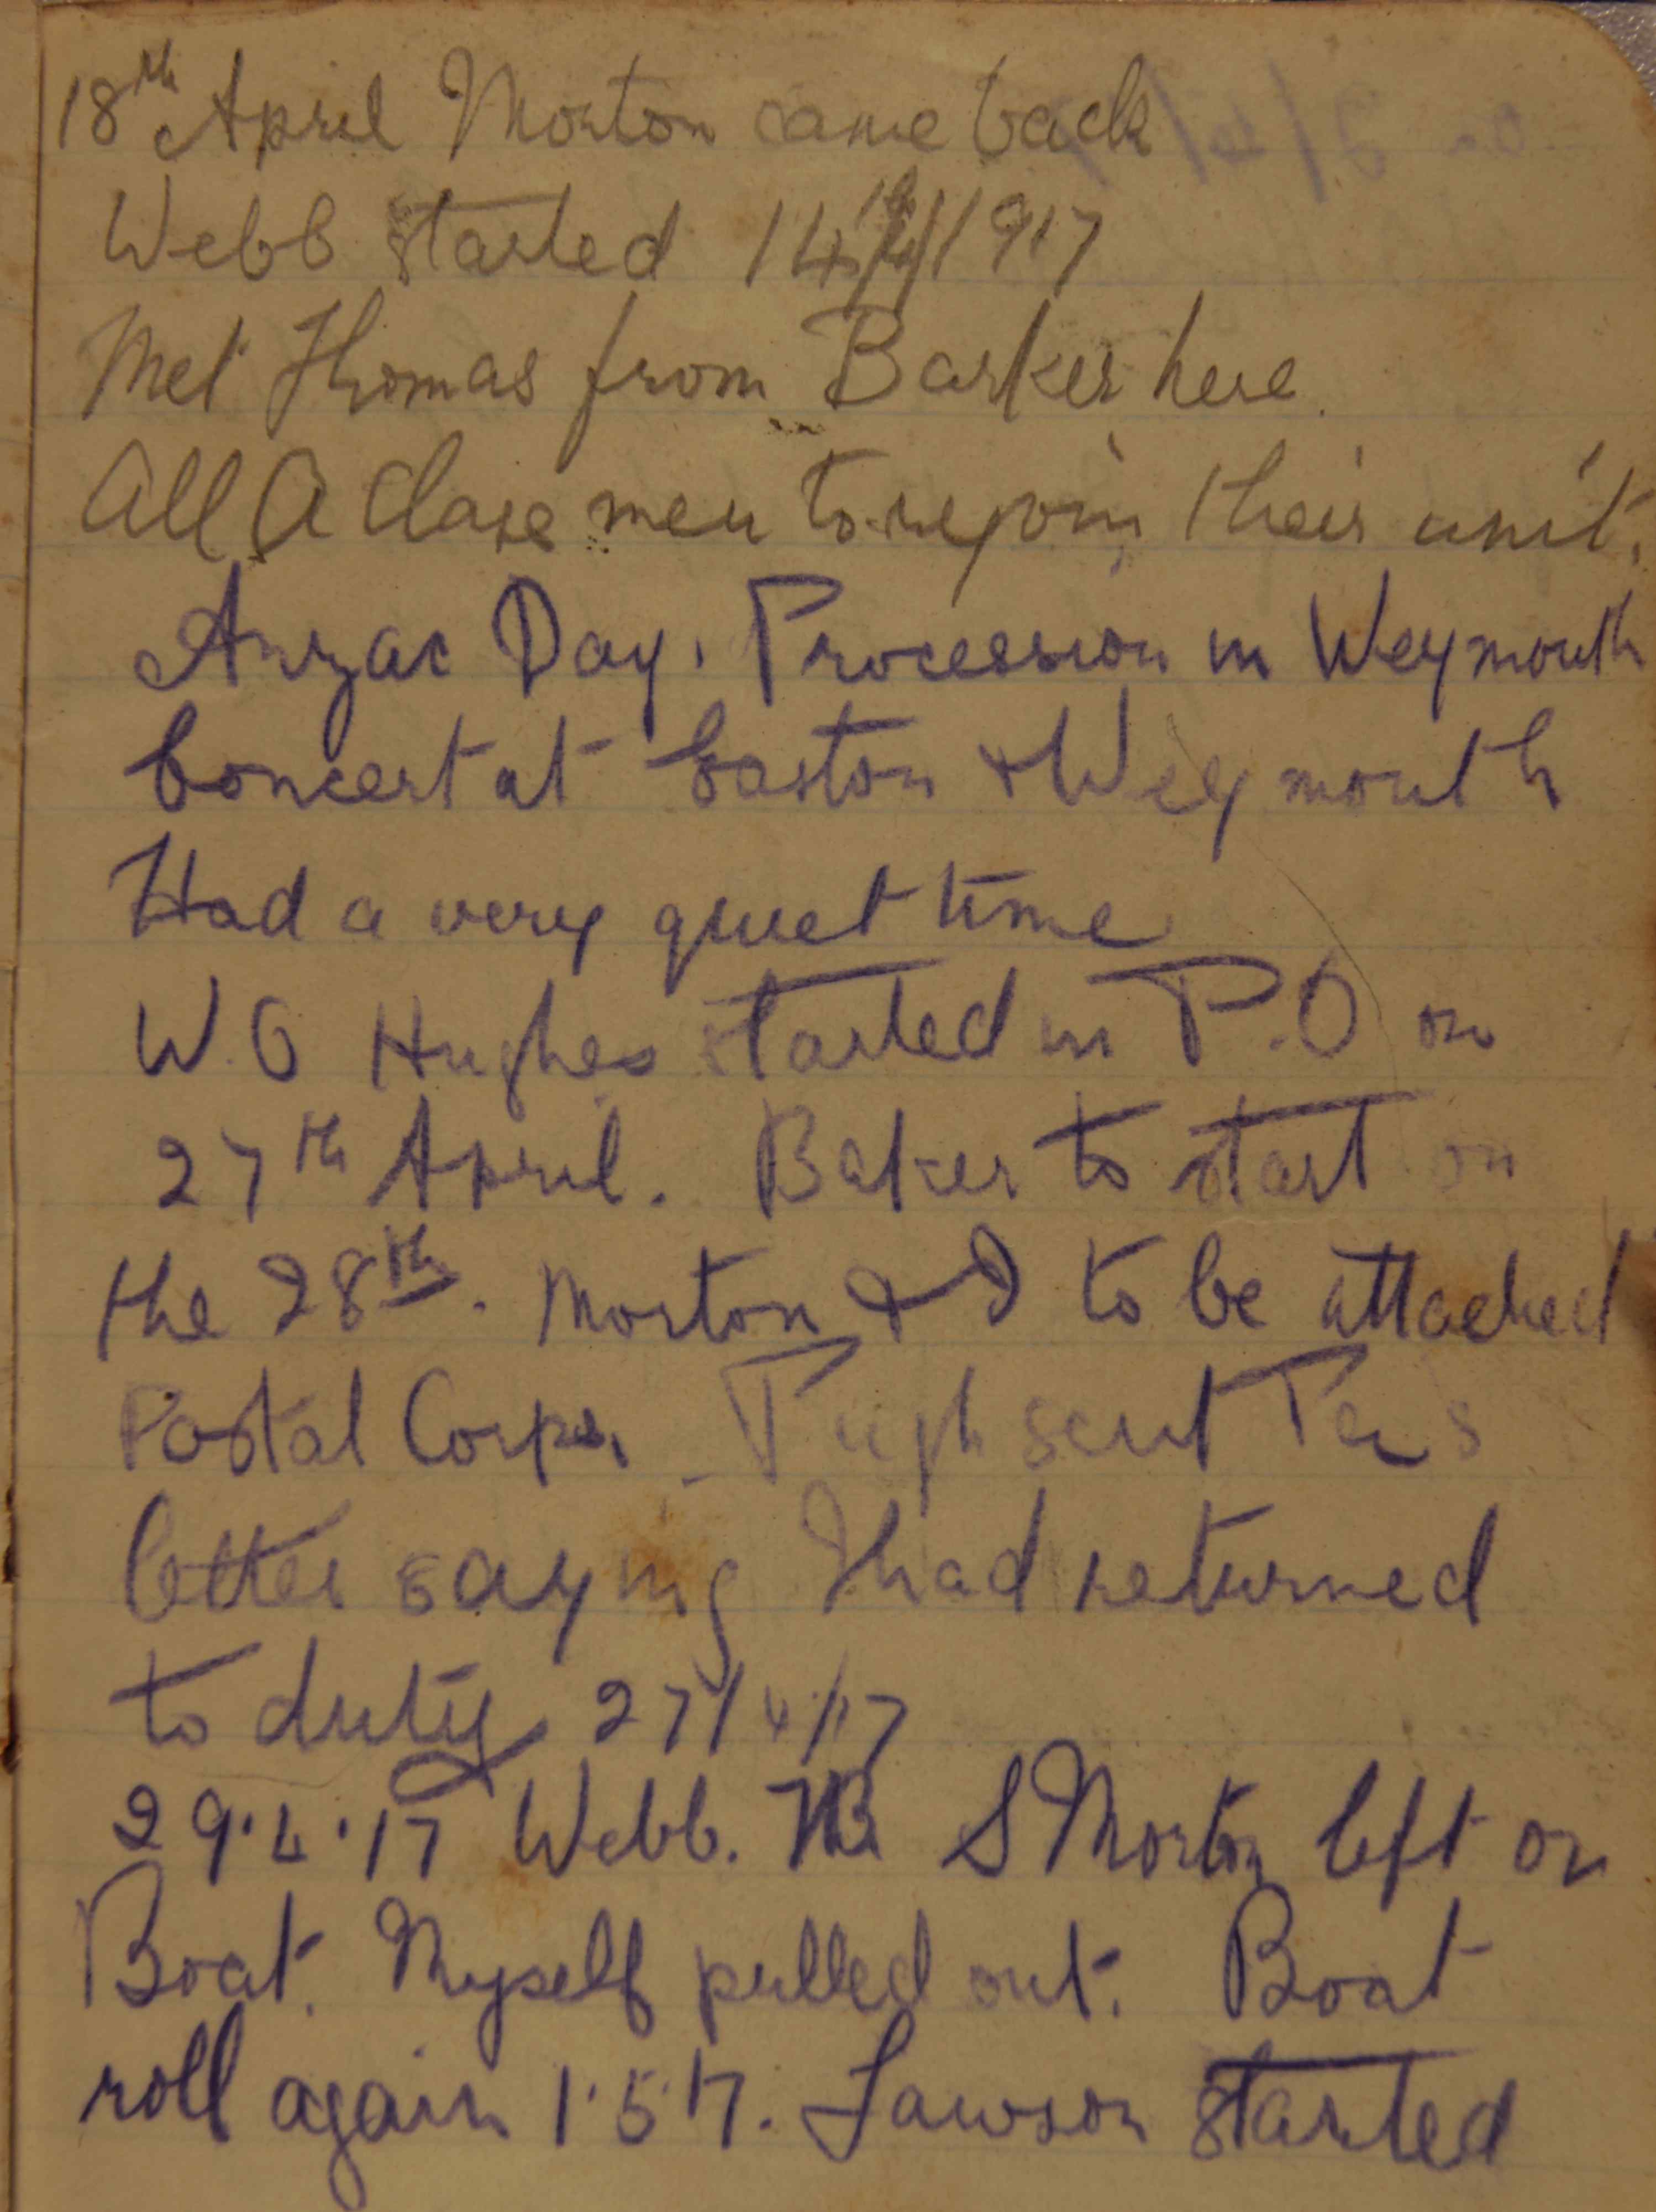 18th April Morton came back
Webb started 14/4/1917
Met Thomas from Barker here.
All A Class men to rejoin their unit.
Anzac Day. Procession in Weymouth
Concert at Easton & Weymouth
Had a very quiet time
W.O Hughes started in P.O on
27th April. Baker to start on
the 28th. Morton & I to be attached
Postal Corps. Pugh sent
letter saying I had returned
to duty 27/4/17
29.4.17 Webb. S Morton left on
Boat. Myself pulled out. Boat
roll again 1.5.17. Lawson started